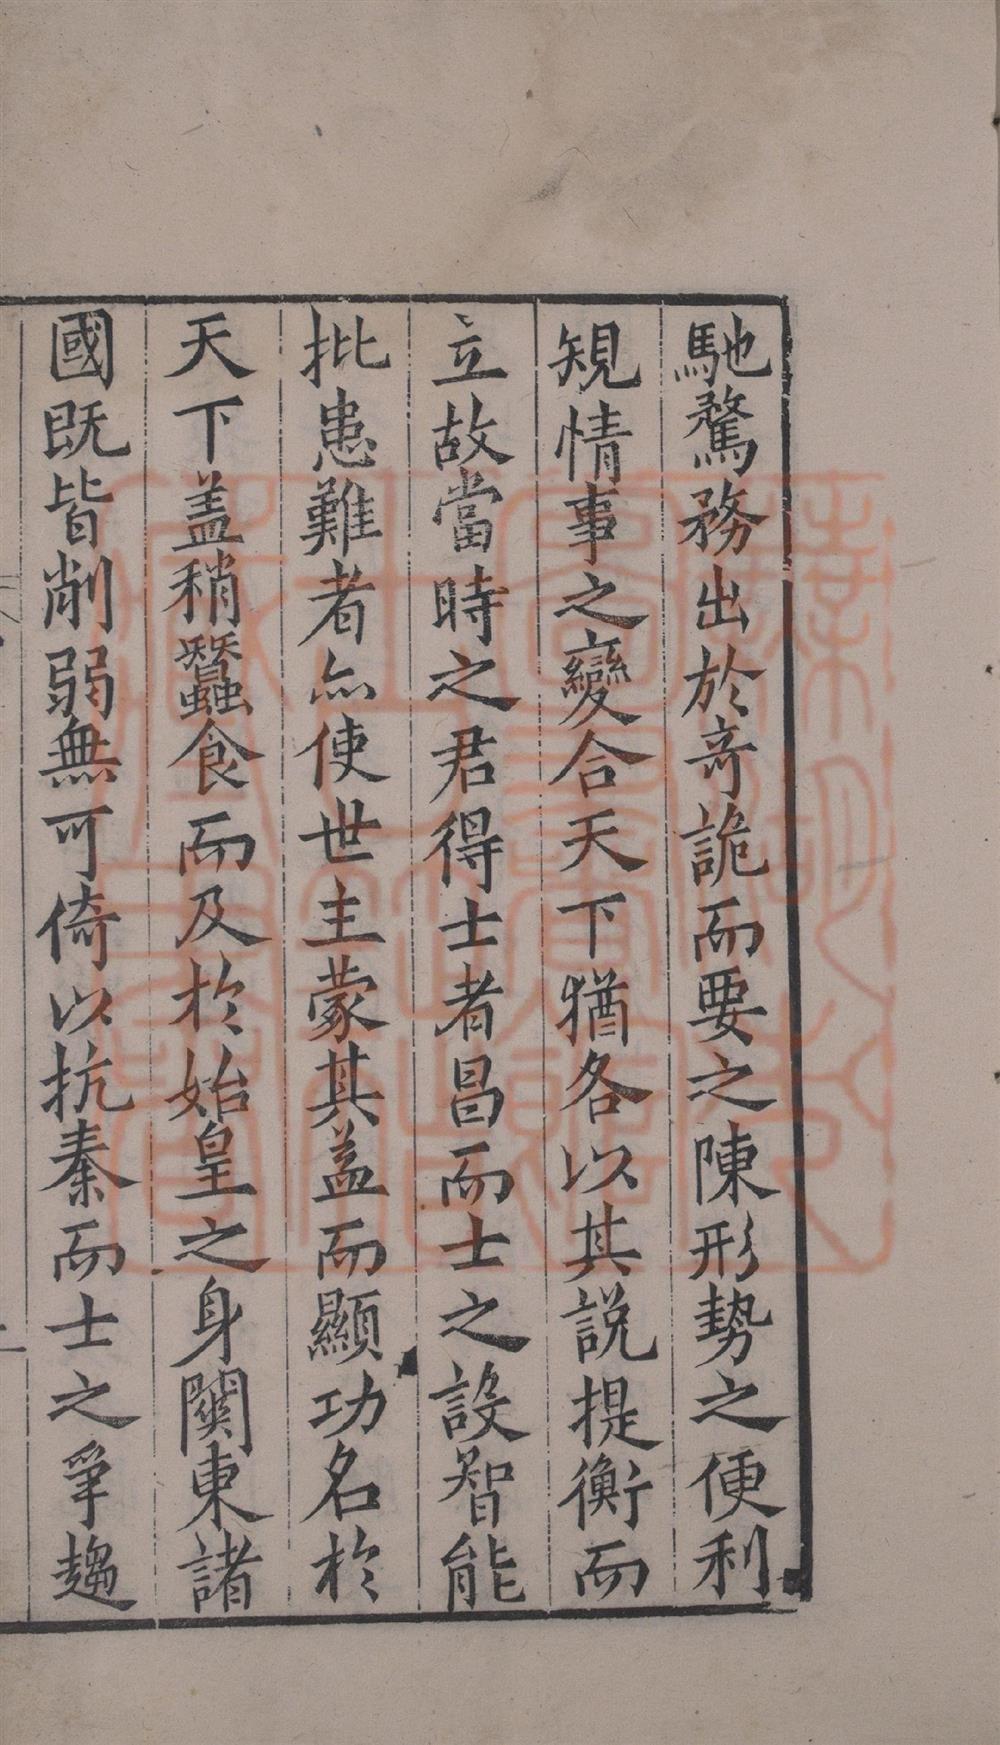 馳騖務出於奇詭而要之陳形勢之便利
䂓情事之變合天下猶各以其説提衡而
立故當時之君得士者昌而士之設智能
批患難者亦使世主蒙其益而顯功名於
天下盖稍蠶食而及於始皇之身關東諸
國既皆削弱無可倚以抗秦而士之爭趨